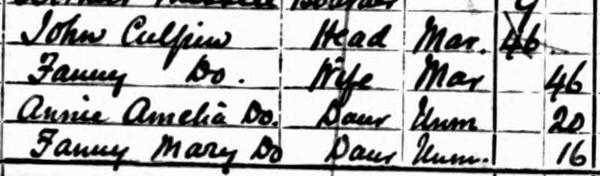 Boarder
John Culpin Head Mar. 46
Fanny Do. Wife Mar 46
Annie Amelia Do. Daur Unm 20
Fanny Mary Do Daur Unm. 16